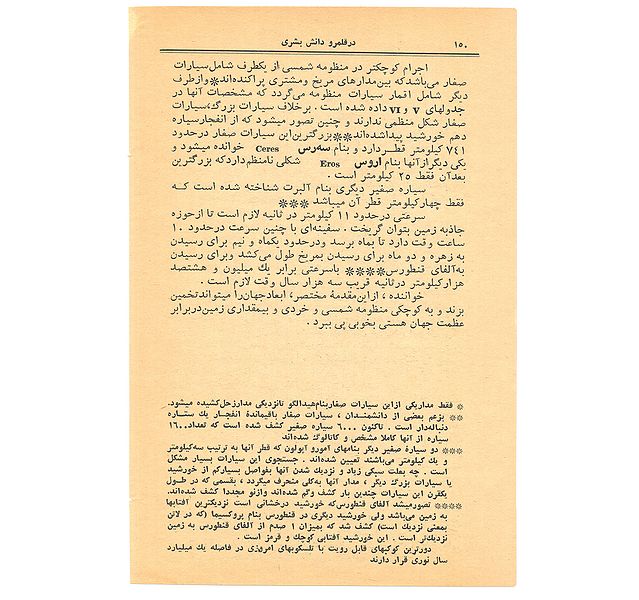 ۱۵۰ درقلمرو دانش بشری
اجرام کوچکتر در منظومه شمسی از یکطرف شامل سیارات
صغار می‌باشد که بین مدارهای مریخ ومشتری پراکنده‌اند※وازطرف
دیگر شامل اقمار سیارات منظومه می‌گردد که مشخصات آنها در
جدولهای V و VI داده شده است . برخلاف سیارات بزرگ،سیارات
صغار شکل منظمی ندارند و چنین تصور میشود که از انفجارسیاره
دهم خورشید پیداشده‌اند※※بزرگترین‌این سیارات صغار درحدود
۷۴۱ کیلومتر قطر دارد و بنام سه‌رس Ceres خوانده میشود و
یکی دیگرازآنها بنام اروس Eros شکلی نامنظم داردکه بزرگترین
بعدآن فقط ۲۵ کیلومتر است .
سیاره صغیر دیگری بنام آلبرت شناخته شده است کـه
فقط چهارکیلومتر قطر آن میباشد ※※※
سرعتی درحدود ۱۱ کیلومتر در ثانیه لازم است تا ازحوزه
جاذبه زمین بتوان گریخت . سفینه‌ای با چنین سرعت درحدود ۱۰
ساعت وقت دارد تا بماه برسد ودرحدود یکماه و نیم برای رسیدن
به زهره و دو ماه برای رسیدن بمریخ طول می‌کشد وبرای رسیدن
به‌آلفای قنطورس※※※※ باسرعتی برابر یك میلیون و هشتصد
هزارکیلومتر درثانیه قریب سه هزار سال وقت لازم است .
خواننده ، ازاین‌مقدمهٔ مختصر، ابعادجهان‌را میتواندتخمین
بزند و به کوچکی منظومه شمسی و خردی و بیمقداری زمین‌دربرابر
عظمت جهان هستی بخوبی پی ببرد .
※ فقط مداریکی ازاین سیارات صغاربنام‌هیدالگو تانزدیکی مدارزحل‌کشیده میشود.
※※ بزعم بعضی از دانشمندان ، سیارات صغار باقیماندهٔ انفجار یك ستاره
دنباله‌دار است . تاکنون ۶۰۰۰ سیاره صغیر کشف شده است که تعداد۱۶۰۰
سیاره از آنها کاملا مشخص و کاتالوگ شده‌اند
※※※ دو سیارهٔ صغیر دیگر بنامهای امورو آپولون که قطر آنها به ترتیب سه‌کیلومتر
و یك کیلومتر می‌باشند تعیین شده‌اند . جستجوی این سیارات بسیار مشکل
است . چه بعلت سبکی زیاد و نزدیك شدن آنها بفواصل بسیارکم از خورشید
یا سیارات بزرگ دیگر ، مدار آنها به‌کلی منحرف میگردد ، بقسمی که در طـول
یکقرن این سیارات چندین بار کشف وگم شده‌اند وازنو مجددا کشف شده‌اند.
※※※※ تصورمیشد آلفای قنطورس‌که خورشید درخشانی است نزدیکترین آفتابها
به زمین می‌باشد ولی خورشید دیگری در قنطورس بنام پروکسیما (که در لاتن
بمعنی نزدیک است) کشف شد که بمیزان ۱ صدم از آلفای قنطورس به زمین
نزدیک‌تر است . این خورشید آفتابی کوچك و قرمز است .
دورترین کوکبهای قابل رویت با تلسکوبهای امروزی در فاصله یك میلیارد
سال نوری قرار دارند